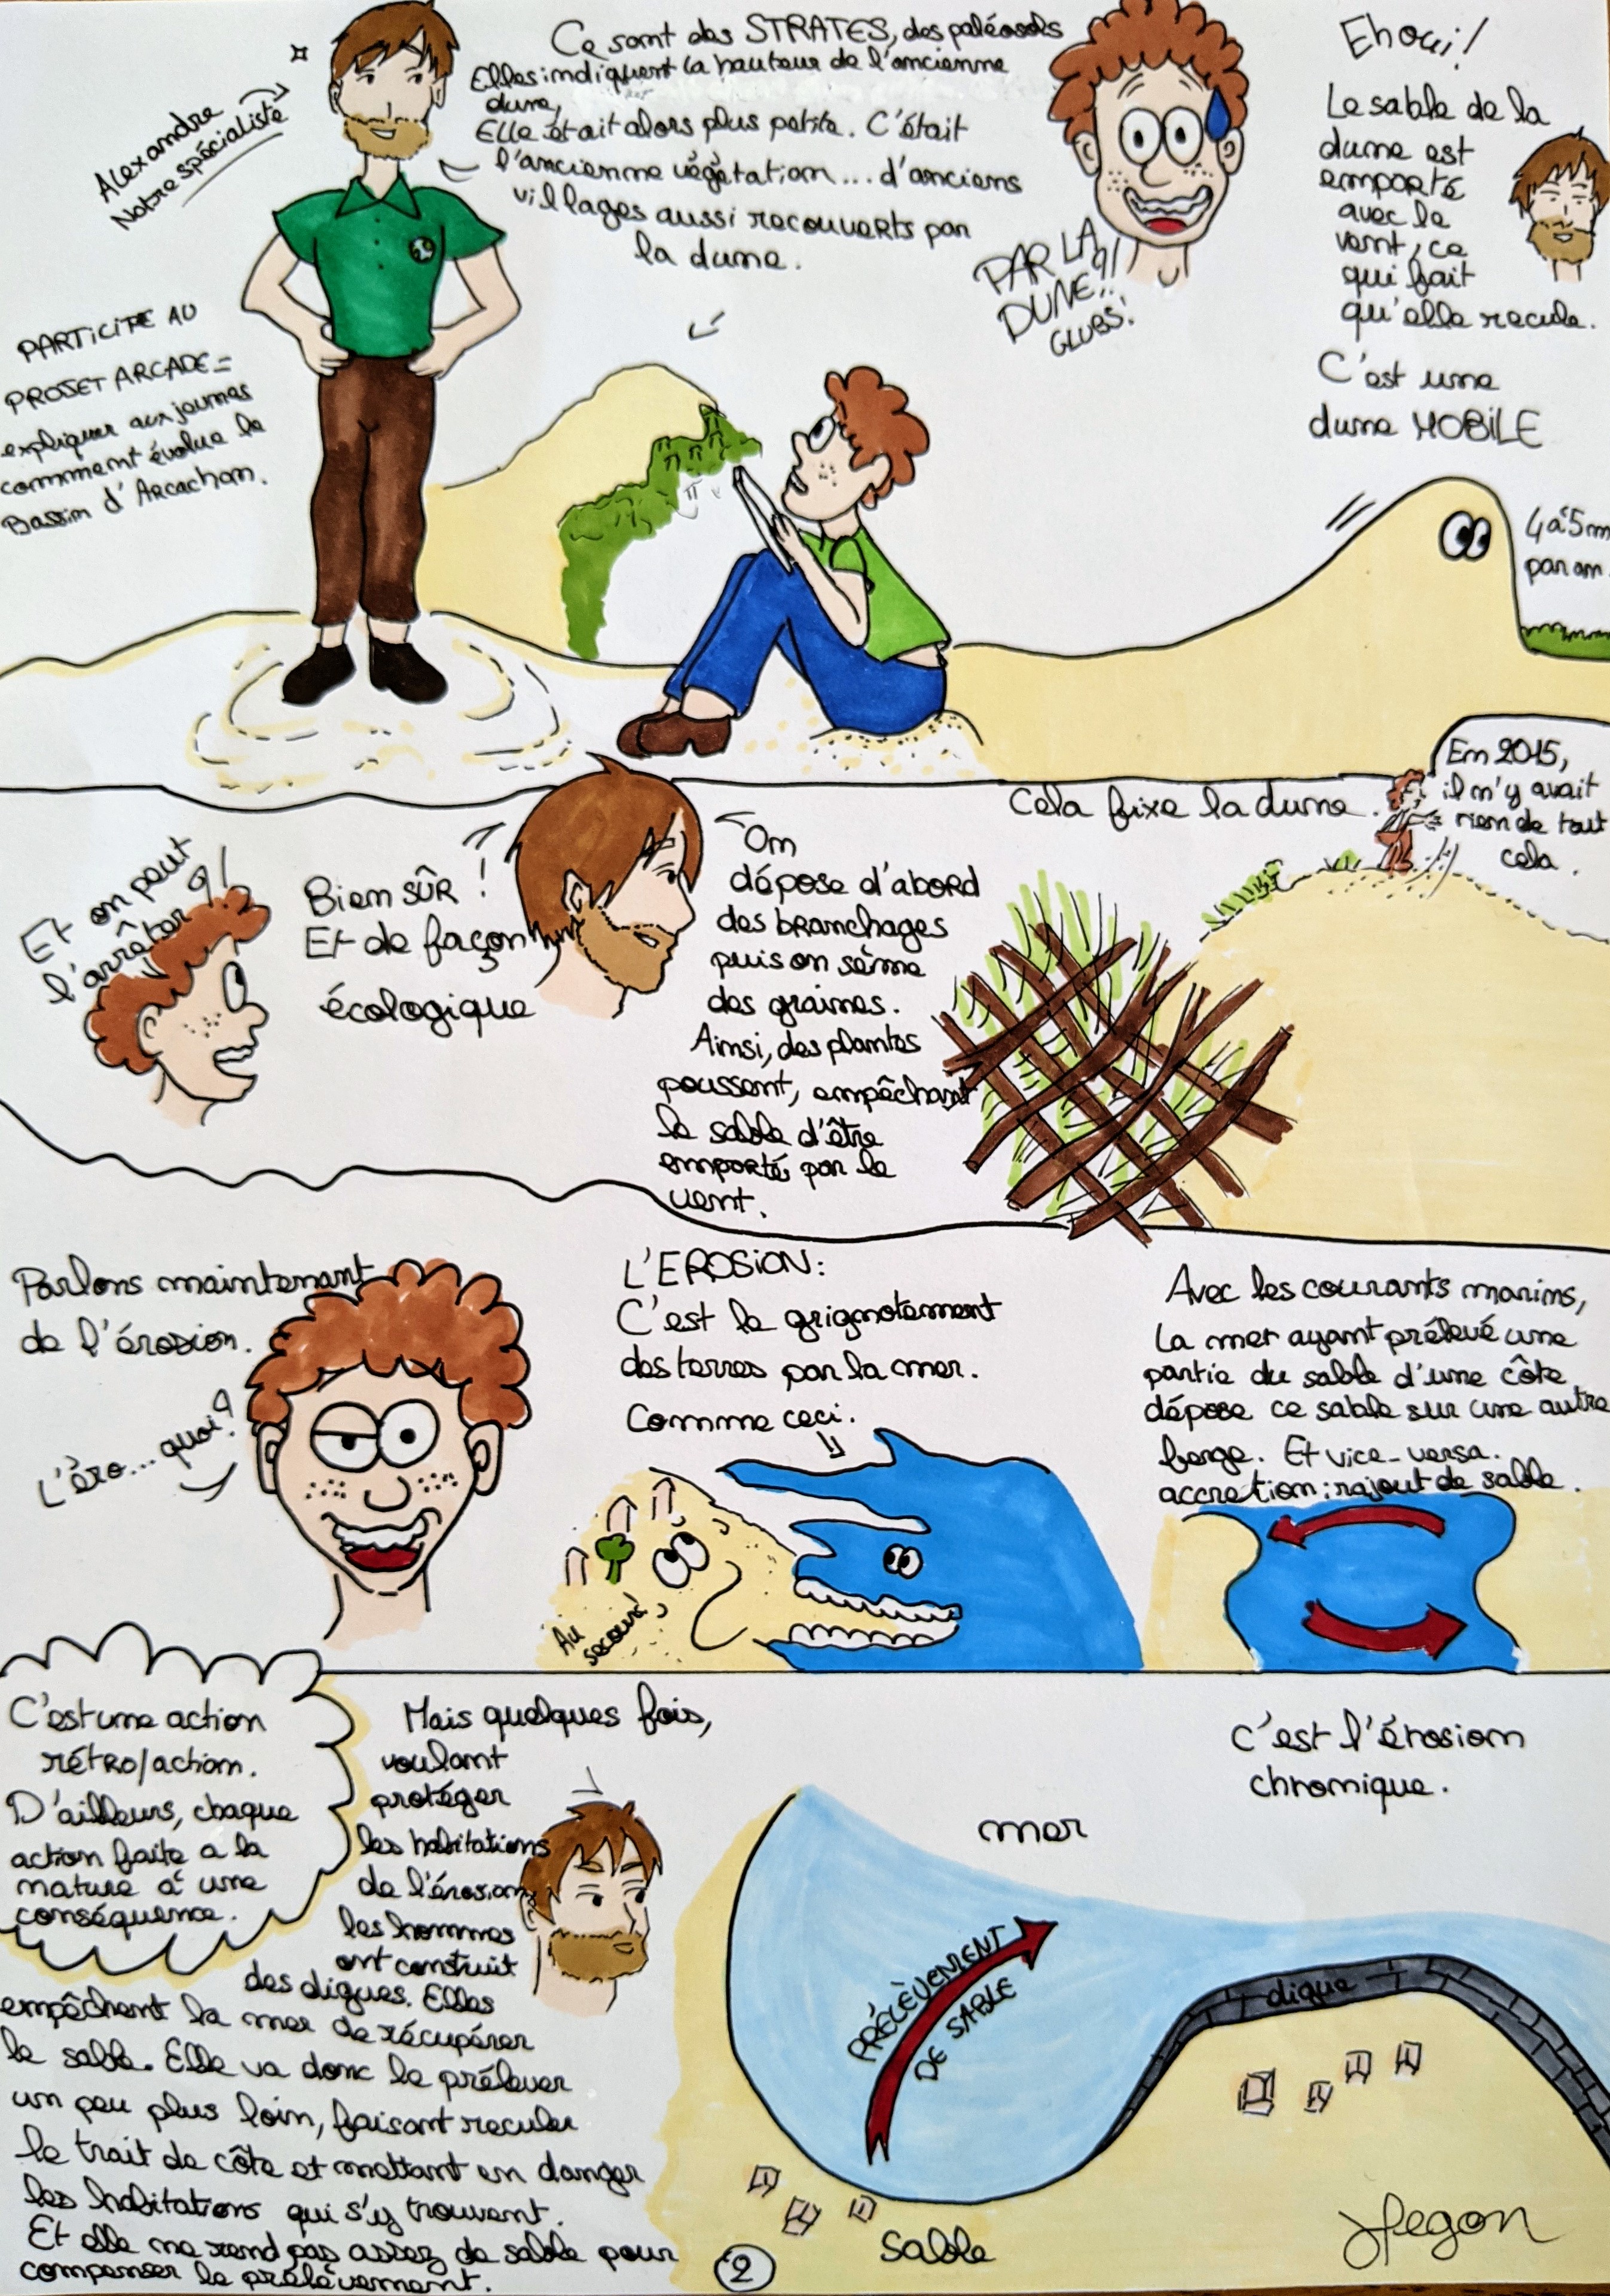 Alexandre
Notre spécialiste
Ce sont des STRATES, des paléosols
Elles indiquent la hauteur de l'ancienne
dune,
Elle était alors plus petite. C'était
l'ancienne végétation... d'anciens
villages aussi recouverts par
la dune.
PAR LA
DUNE ?!!
GLUBS!
Eh oui!
Le sable de la
dune est
emporté
avec le
vent, ce
qui fait
qu'elle recule.
C'est une
dune MOBILE
PARTICIPE AU
PROJET ARCADE =
expliquer aux jeunes
comment évolue le
Bassin d'Arcachon.
4 à 5 m
par an.
Et on peut
l'arrêter ?!
Bien sÛr !
Et de façon
écologique
On
dépose d'abord
des branchages
puis on sème
des graines.
Ainsi, des plantes
poussent, empêchant
le sable d'être
emporté par le
vent.
Cela fixe la dune.
En 2015,
il n'y avait
rien de tout
cela.
Parlons maintenant
de l'érosion.
L'éro... quoi?
L'EROSION:
C'est le grignotement
des terres par la mer.
Comme ceci.
Au
secours!
Avec les courants marins,
la mer ayant prélevé une
partie du sable d'une côte
dépose ce sable sur une autre
berge. Et vice-versa.
accretion: rajout de sable.
C'est une action
rétro/action.
D'ailleurs, chaque
action faite a la
nature à une
conséquence.
Mais quelques fois,
voulant
protéger
les habitations
de l'érosion,
les hommes
ont construit
des digues. Elles
empêchent la mer de récupérer
le sable. Elle va donc le prélever
un peu plus loin, faisant reculer
le trait de côte et mettant en danger
les habitations qui s'y trouvent.
Et elle ne rend pas assez de sable pour
compenser le prélèvement.
C'est l'érosion
chronique.
mer
PRÉLÈVEMENT
DE SABLE
digue
Sable
2
JPegon